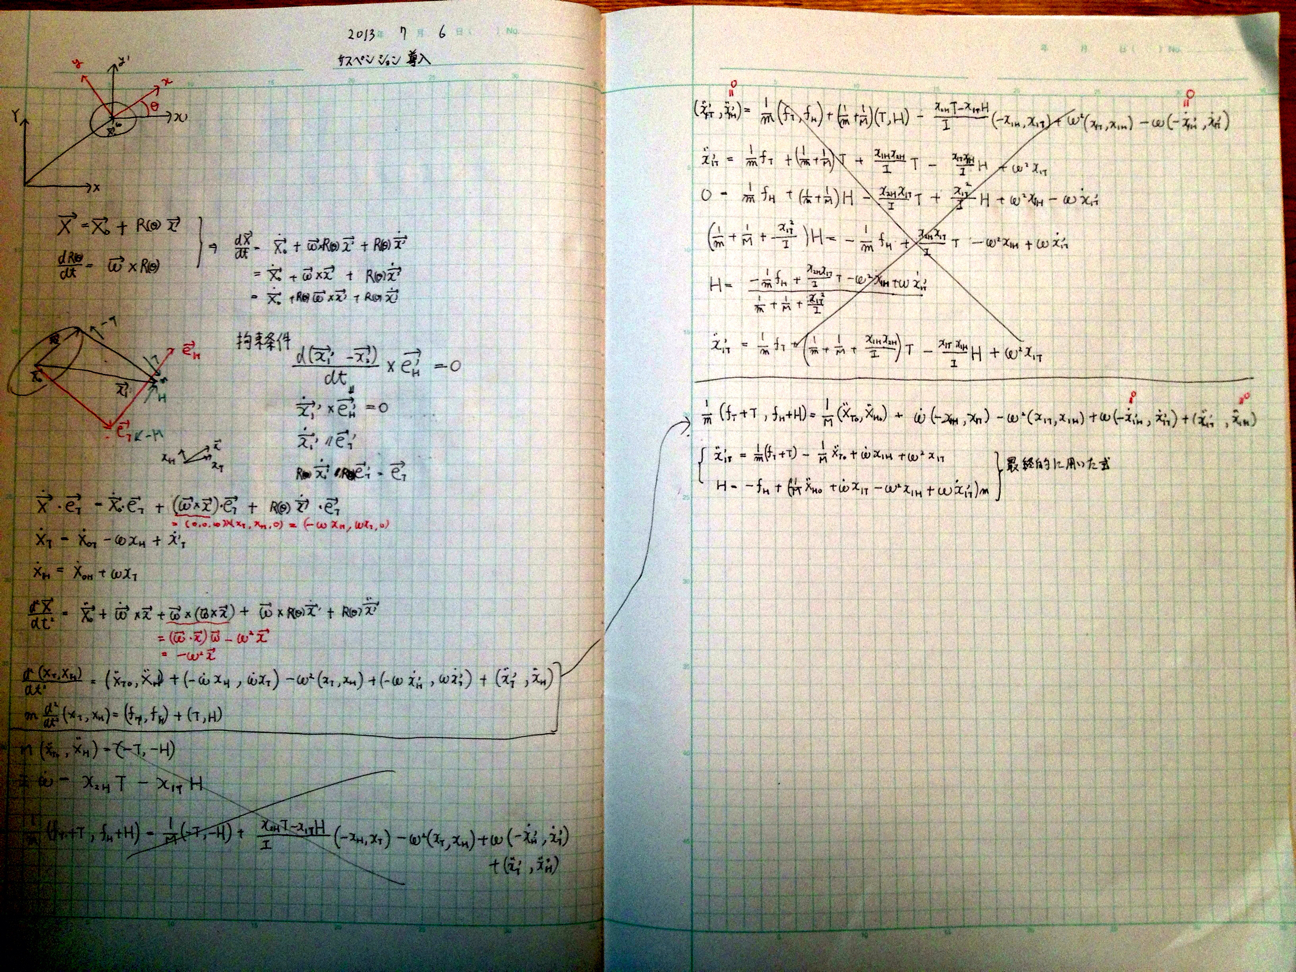 2013年 7月 6日( ) No.
サスペンション導入
y
y'
x
θ
x'
Y
x
X⃗ = X⃗₀ + R(θ) x⃗'
dR(θ)/dt = ω⃗ × R(θ)
⇒ dX⃗/dt = Ẋ⃗₀ + ω⃗×R(θ)x⃗' + R(θ)ẋ⃗'
= Ẋ⃗₀ + ω⃗×x⃗ + R(θ)ẋ⃗'
= Ẋ⃗₀ + R(θ)ω⃗×x⃗' + R(θ)ẋ⃗'
-T
e⃗_H
H
e⃗_T
-H
x_H
x⃗
x_T
拘束条件
d(x⃗₁' - x⃗₂')/dt × e⃗_H' = 0
ẋ⃗₁' × e⃗_H' = 0
ẋ⃗₁' // e⃗_T'
Ẋ⃗·e⃗_T = Ẋ⃗₀·e⃗_T + (ω⃗×x⃗)·e⃗_T + R(θ)ẋ⃗'·e⃗_T
= (0,0,ω)×(x_T, x_H, 0) = (-ωx_H, ωx_T, 0)
Ẋ_T = Ẋ_0T - ωx_H + ẋ'_T
Ẋ_H = Ẋ_0H + ωx_T
d²X⃗/dt² = Ẍ⃗₀ + ω̇⃗×x⃗ + ω⃗×(ω⃗×x⃗) + ω⃗×R(θ)ẋ⃗' + R(θ)ẍ⃗'
= (ω⃗·x⃗)ω⃗ - ω²x⃗
= -ω²x⃗
d²(X_T, X_H)/dt² = (Ẍ_T0, Ẍ_H) + (-ω̇x_H, ω̇x_T) - ω²(x_T, x_H) + (-ωẋ'_H, ωẋ'_T) + (ẍ'_T, ẍ_H)
m d²/dt² (x_T, x_H) = (f_T, f_H) + (T, H)
(Ẍ_T0, Ẍ_H) = (-T, -H)
ω̇ = x_2H T - x_1T H
1/m (f_T+T, f_H+H) = 1/M (-T, -H) + (x_2H T - x_1T H)/I (-x_H, x_T) - ω²(x_T, x_H) + ω(-ẋ'_H, ẋ'_T)
+ (ẍ'_T, ẍ'_H)
年 月 日( ) No.
0 0
(ẍ'_1T, ẍ'_1H) = 1/m (f_T, f_H) + (1/m + 1/M)(T, H) - (x_2H T - x_1T H)/I (-x_1H, x_1T) + ω²(x_1T, x_1H) - ω(-ẋ'_1H, ẋ'_1T)
ẍ'_1T = 1/m f_T + (1/m + 1/M)T + x_1H x_2H/I T - x_1T x_1H/I H + ω²x_1T
0 = 1/m f_H + (1/m + 1/M)H - x_2H x_1T/I T + x_1T²/I H + ω²x_1H - ωẋ'_1T
(1/m + 1/M + x_1T²/I)H = -1/m f_H + x_2H x_1T/I T - ω²x_1H + ωẋ'_1T
H = (-1/m f_H + x_2H x_1T/I T - ω²x_1H + ωẋ'_1T)/(1/m + 1/M + x_1T²/I)
ẍ'_1T = 1/m f_T + (1/m + 1/M + x_1H x_2H/I)T - x_1T x_1H/I H + ω²x_1T
0 0
1/m (f_T+T, f_H+H) = 1/M (Ẍ_T0, Ẍ_H0) + ω̇(-x_1H, x_1T) - ω²(x_1T, x_1H) + ω(-ẋ'_1H, ẋ'_1T) + (ẍ'_1T, ẍ'_1H)
ẍ'_1T = 1/m (f_T+T) - 1/M Ẍ_T0 + ω̇x_1H + ω²x_1T
H = -f_H + (1/M Ẍ_H0 + ω̇x_1T - ω²x_1H + ωẋ'_1T)m
最終的に用いた式